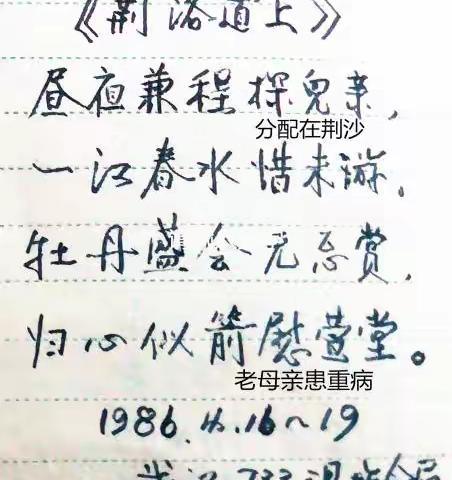 《荆洛道上》
昼夜兼程探兒亲，
分配在荆沙
一江春水惜未游，
牡丹盛会无赏，
归心似箭慰萱堂。
老母亲患重病
1986.4.16~19
733